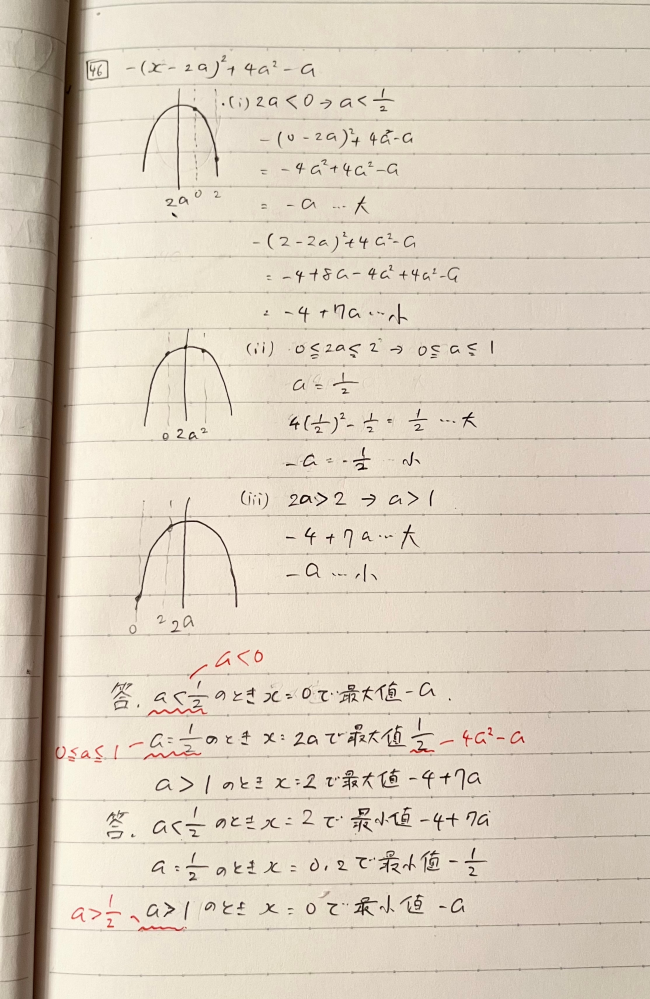 46 -(x-2a)²+4a²-a
・(i) 2a<0→a<1/2
-(0-2a)²+4a²-a
= -4a²+4a²-a
= -a … 大
2a 0 2
-(2-2a)²+4a²-a
= -4+8a-4a²+4a²-a
= -4+7a … 小
(ii) 0≦2a≦2 → 0≦a≦1
a = 1/2
4(1/2)²-1/2 = 1/2 … 大
0 2a 2
-a = -1/2 … 小
(iii) 2a>2 → a>1
-4+7a … 大
-a … 小
0 2 2a
a<0
答. a<1/2 のとき x=0で最大値-a.
0≦a≦1 - a=1/2 のとき x=2aで最大値 1/2 - 4a²-a
a>1 のとき x=2で最大値-4+7a
答. a<1/2 のとき x=2で最小値-4+7a
a=1/2 のとき x=0,2で最小値-1/2
a>1/2、a>1 のとき x=0で最小値 -a